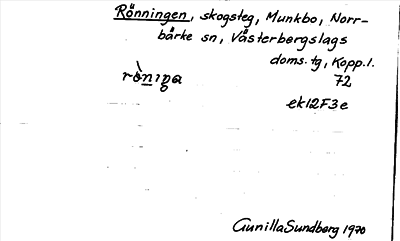 Rönningen, skogsteg, Munkbo, Norr-
bärke sn, Västerbergslags
doms. tg, Kopp. l.
72
ek12F3e
Gunilla Sundberg 1970